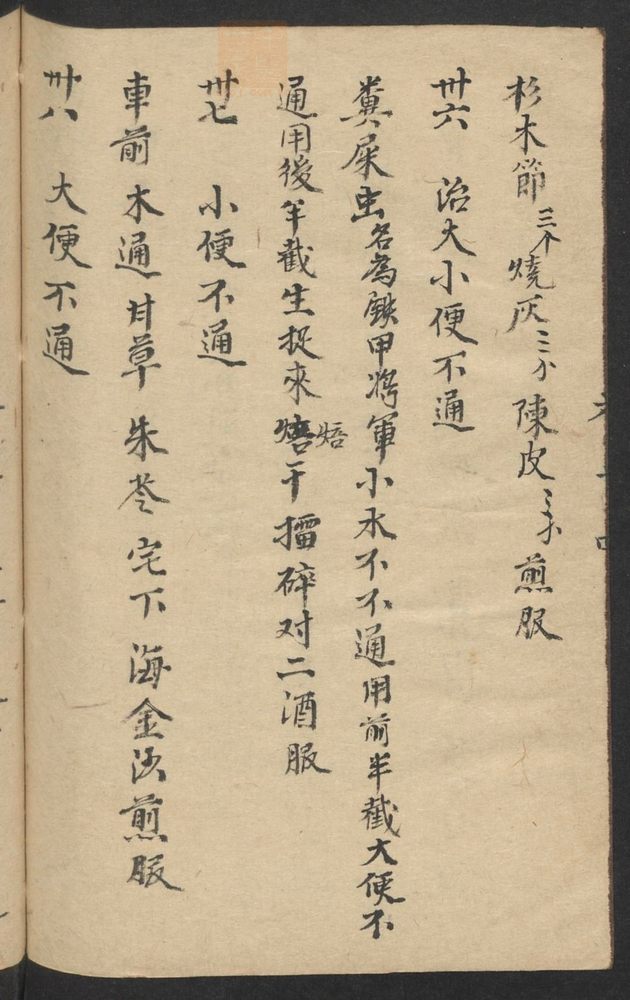 杉木節三个燒灰三个陳皮三个煎服
卅六 治大小便不通
糞屎虫名為鐵甲將軍小水不不通用前半截大便不
通用後半截生捉來焙干擂碎对二酒服
焙
卅七 小便不通
車前 木通 甘草 朱苓 宅下 海金沙 煎服
卅八 大便不通